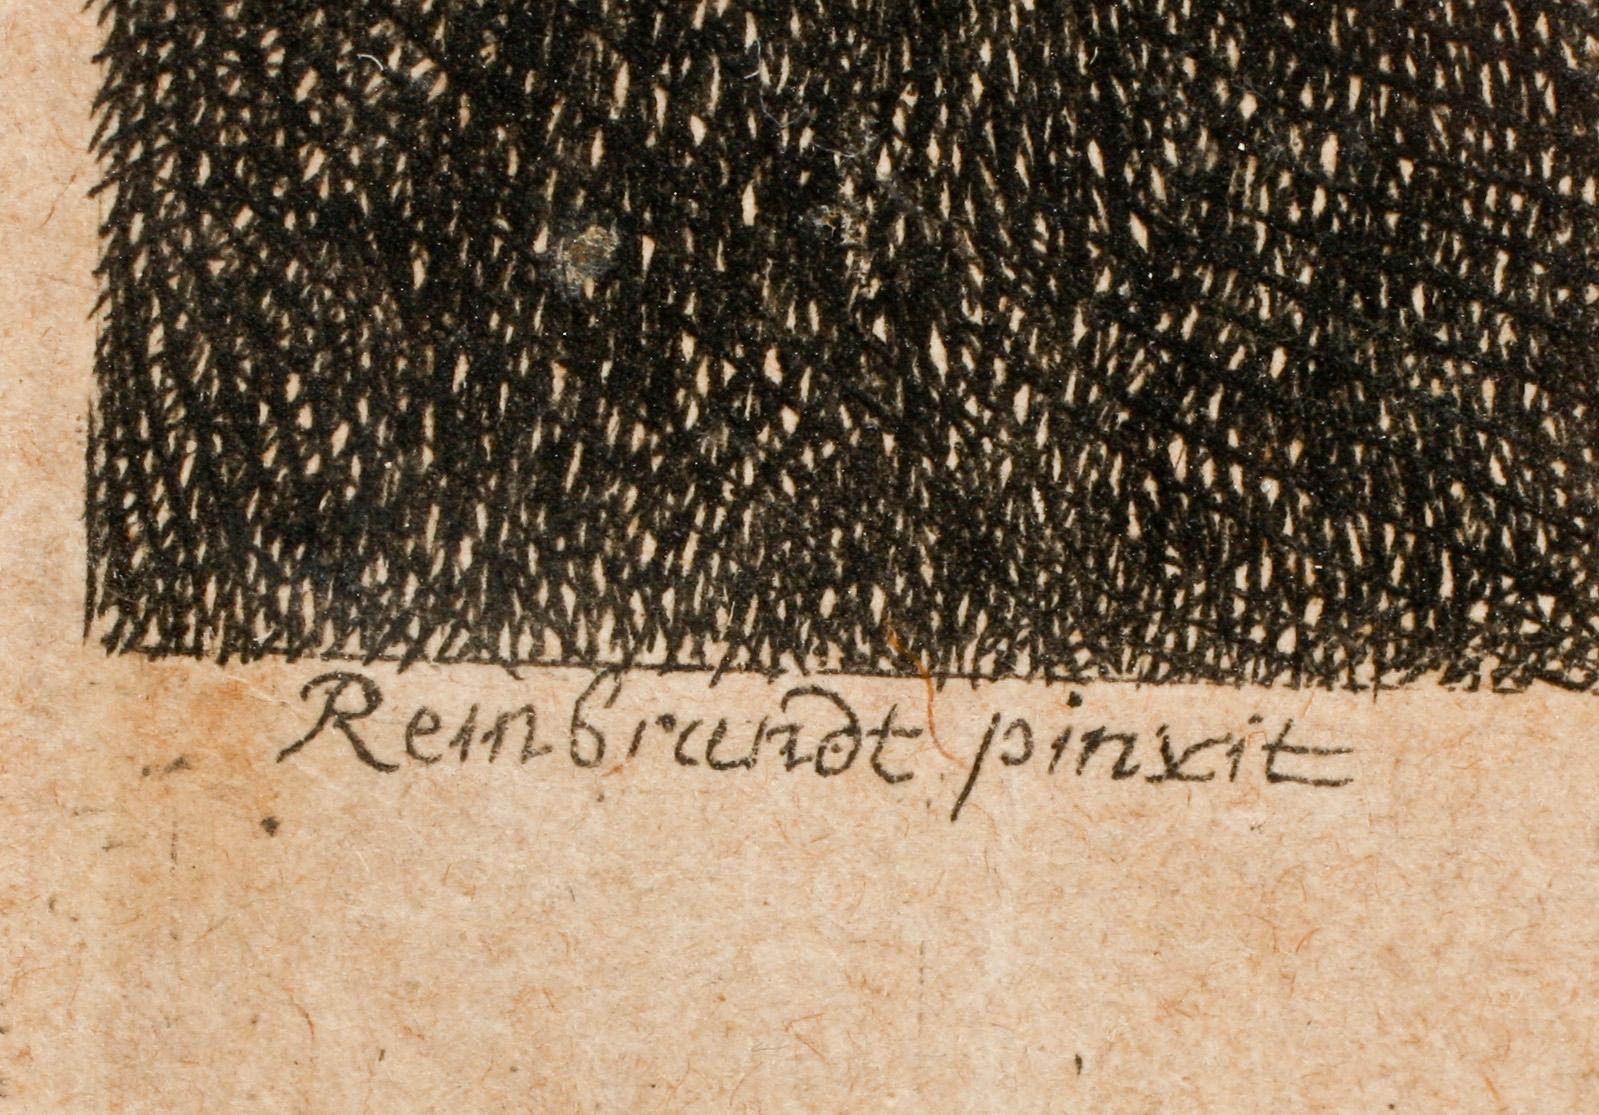 Reinbrandt pinxit